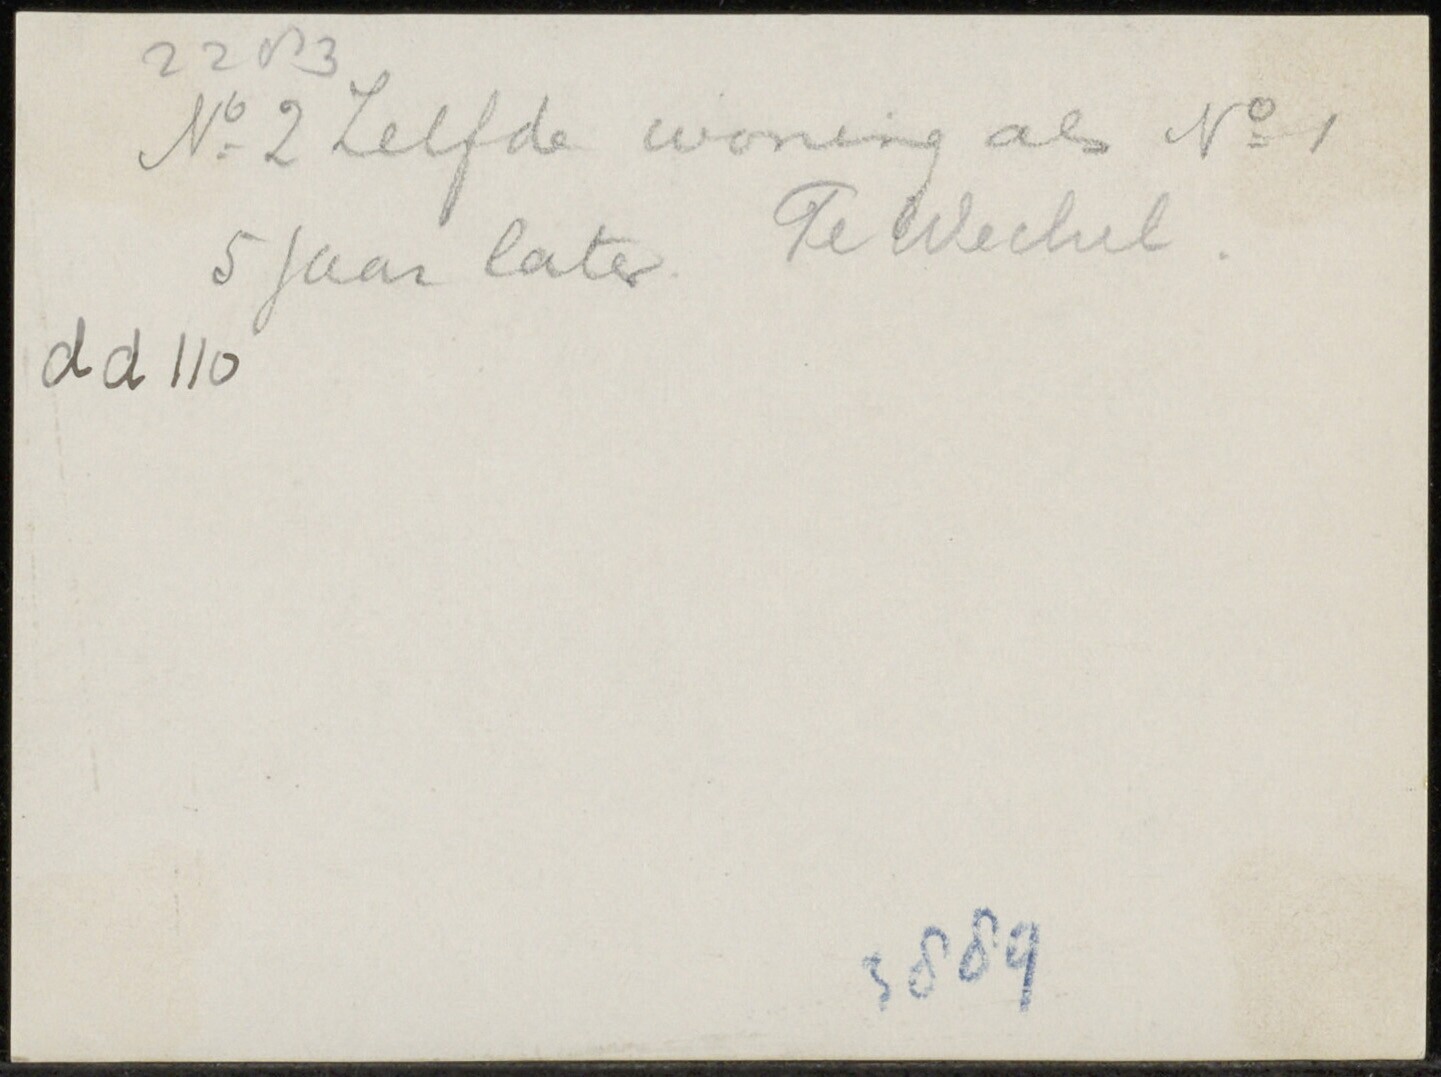 2283
No 2 Zelfde woning als No 1
5 jaar later. Te Wechel.
dd 110
3889